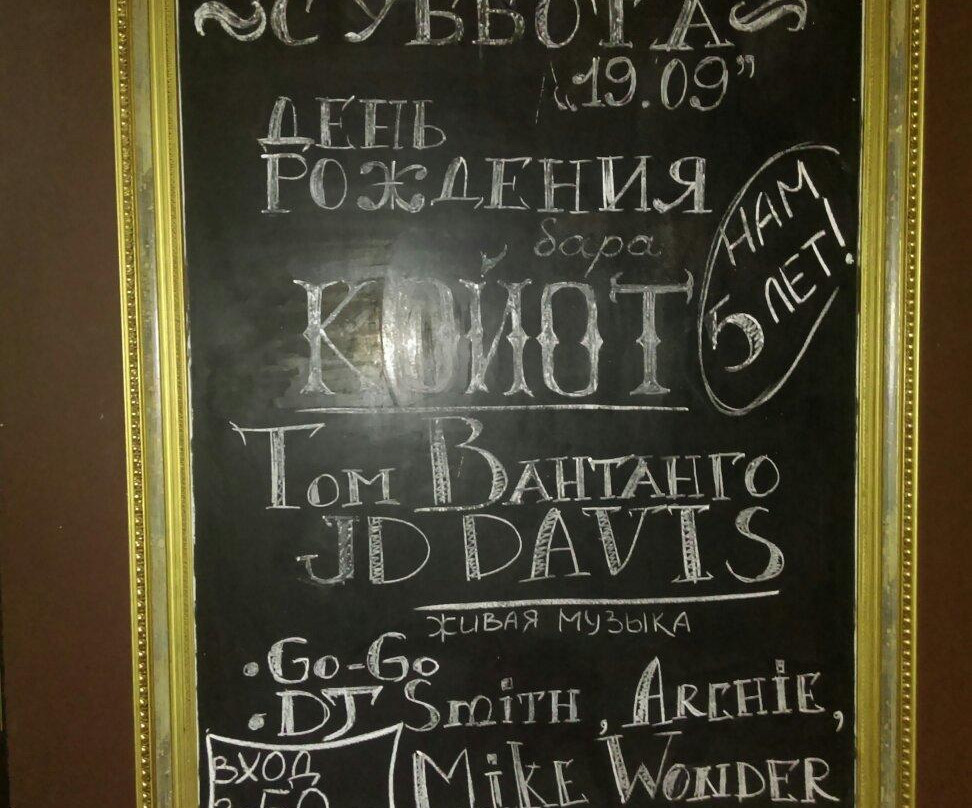 СУББОТА
„19.09”
ДЕНЬ
РОЖДЕНИЯ
бара
КОЙОТ
НАМ
5 ЛЕТ!
Том Вантанго
JD DAVIS
живая музыка
• Go-Go
• DJ Smith, Archie,
Mike Wonder
ВХОД